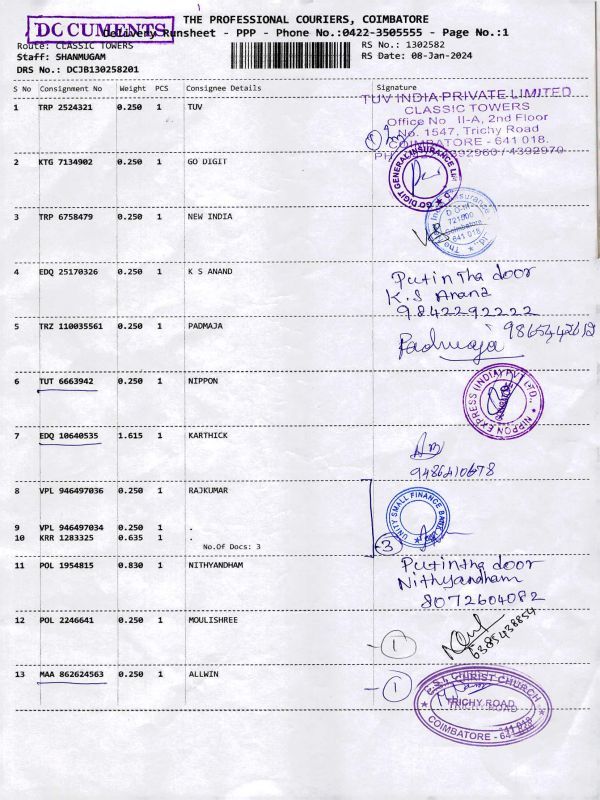 THE PROFESSIONAL COURIERS, COIMBATORE
DOCUMENTS
Delivery Runsheet - PPP - Phone No.:0422-3505555 - Page No.:1
Route: CLASSIC TOWERS
RS No.: 1302582
Staff: SHANMUGAM
RS Date: 08-Jan-2024
DRS No.: DCJB130258201
S No Consignment No Weight PCS Consignee Details Signature
1 TRP 2524321 0.250 1 TUV
TUV INDIA PRIVATE LIMITED
CLASSIC TOWERS
Office No II-A, 2nd Floor
No. 1547, Trichy Road
COIMBATORE - 641 018.
/ 4392970
2 KTG 7134902 0.250 1 GO DIGIT
GO DIGIT GENERAL INSURANCE
3 TRP 6758479 0.250 1 NEW INDIA
721600
Coimbatore
641 018
4 EDQ 25170326 0.250 1 K S ANAND
Put in tha door
K.S Anand
9842292222
5 TRZ 110035561 0.250 1 PADMAJA
Padmaja
6 TUT 6663942 0.250 1 NIPPON
NIPPON EXPRESS (INDIA) PVT. LTD.
7 EDQ 10640535 1.615 1 KARTHICK
9486410678
8 VPL 946497036 0.250 1 RAJKUMAR
UNITY SMALL FINANCE BANK
9 VPL 946497034 0.250 1 .
10 KRR 1283325 0.635 1 .
3
No.Of Docs: 3
11 POL 1954815 0.830 1 NITHYANDHAM
Put in tha door
Nithyandham
8072604082
12 POL 2246641 0.250 1 MOULISHREE
1
6385438854
13 MAA 862624563 0.250 1 ALLWIN
1
C.S.I. CHRIST CHURCH
TRICHY ROAD
COIMBATORE - 641 018